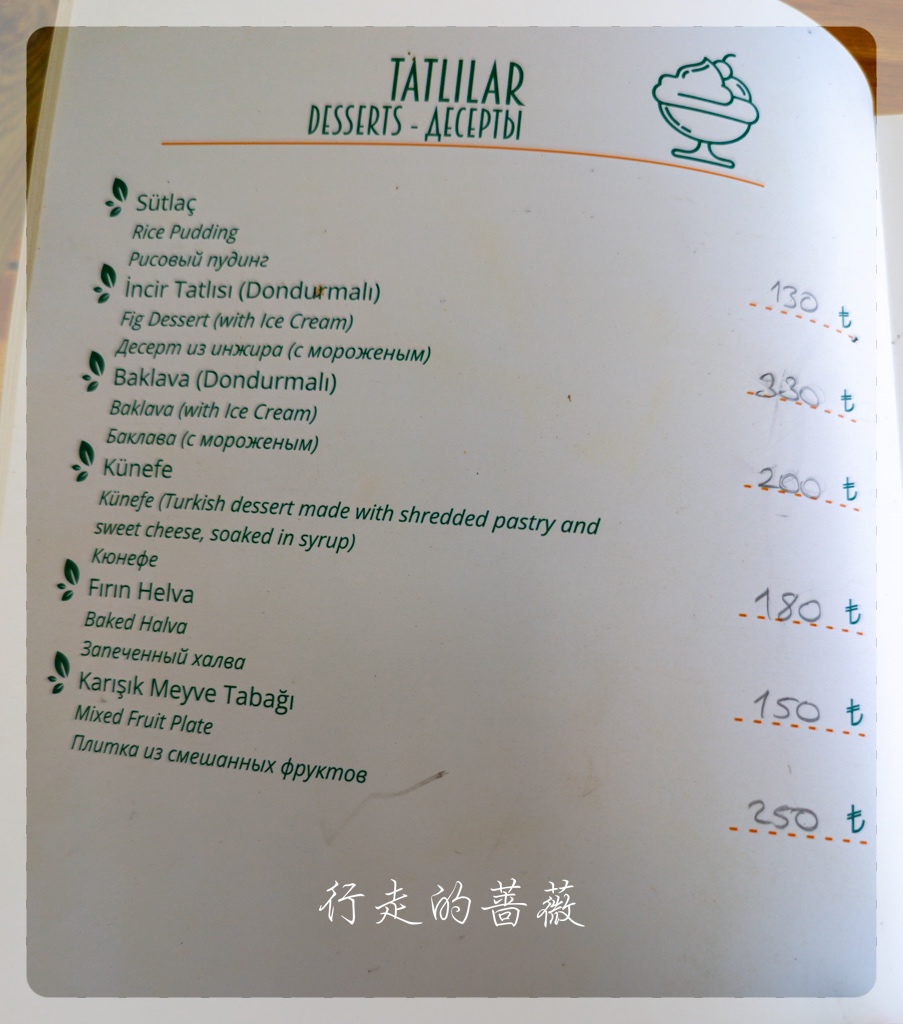 TATLILAR
DESSERTS - ДЕСЕРТЫ
Sütlaç
Rice Pudding
Рисовый пудинг
130 ₺
İncir Tatlısı (Dondurmalı)
Fig Dessert (with Ice Cream)
Десерт из инжира (с мороженым)
330 ₺
Baklava (Dondurmalı)
Baklava (with Ice Cream)
Баклава (с мороженым)
200 ₺
Künefe
Künefe (Turkish dessert made with shredded pastry and
sweet cheese, soaked in syrup)
Кюнефе
180 ₺
Fırın Helva
Baked Halva
Запеченный халва
150 ₺
Karışık Meyve Tabağı
Mixed Fruit Plate
Плитка из смешанных фруктов
250 ₺
行走的蔷薇